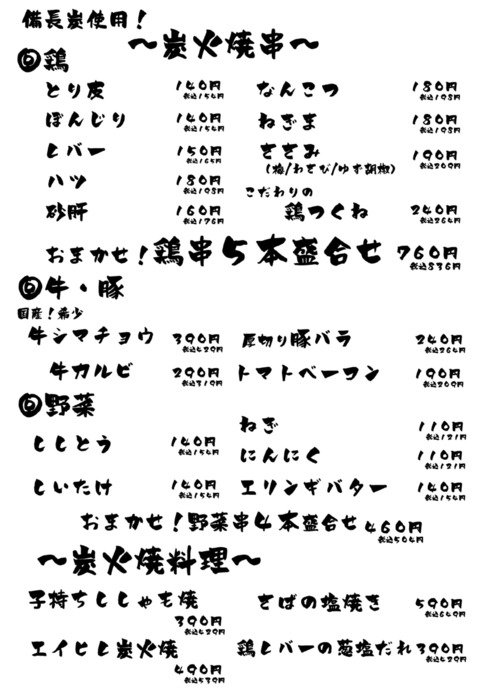 備長炭使用！
～炭火焼串～
◎鶏
とり皮 140円 税込154円
なんこつ 180円 税込198円
ぼんじり 140円 税込154円
ねぎま 180円 税込198円
レバー 150円 税込165円
ささみ 190円 税込209円
(梅/わさび/ゆず胡椒)
ハツ 180円 税込198円
こだわりの
砂肝 160円 税込176円
鶏つくね 240円 税込264円
おまかせ！鶏串5本盛合せ 760円 税込836円
◎牛・豚
国産！希少
牛シマチョウ 390円 税込429円
厚切り豚バラ 240円 税込264円
牛カルビ 290円 税込319円
トマトベーコン 190円 税込209円
◎野菜
ねぎ 110円 税込121円
ししとう 140円 税込154円
にんにく 110円 税込121円
しいたけ 140円 税込154円
エリンギバター 140円 税込154円
おまかせ！野菜串4本盛合せ 460円 税込504円
～炭火焼料理～
子持ちししゃも焼 390円 税込429円
さばの塩焼き 590円 税込649円
エイヒレ炭火焼 490円 税込539円
鶏レバーの葱塩だれ 390円 税込429円